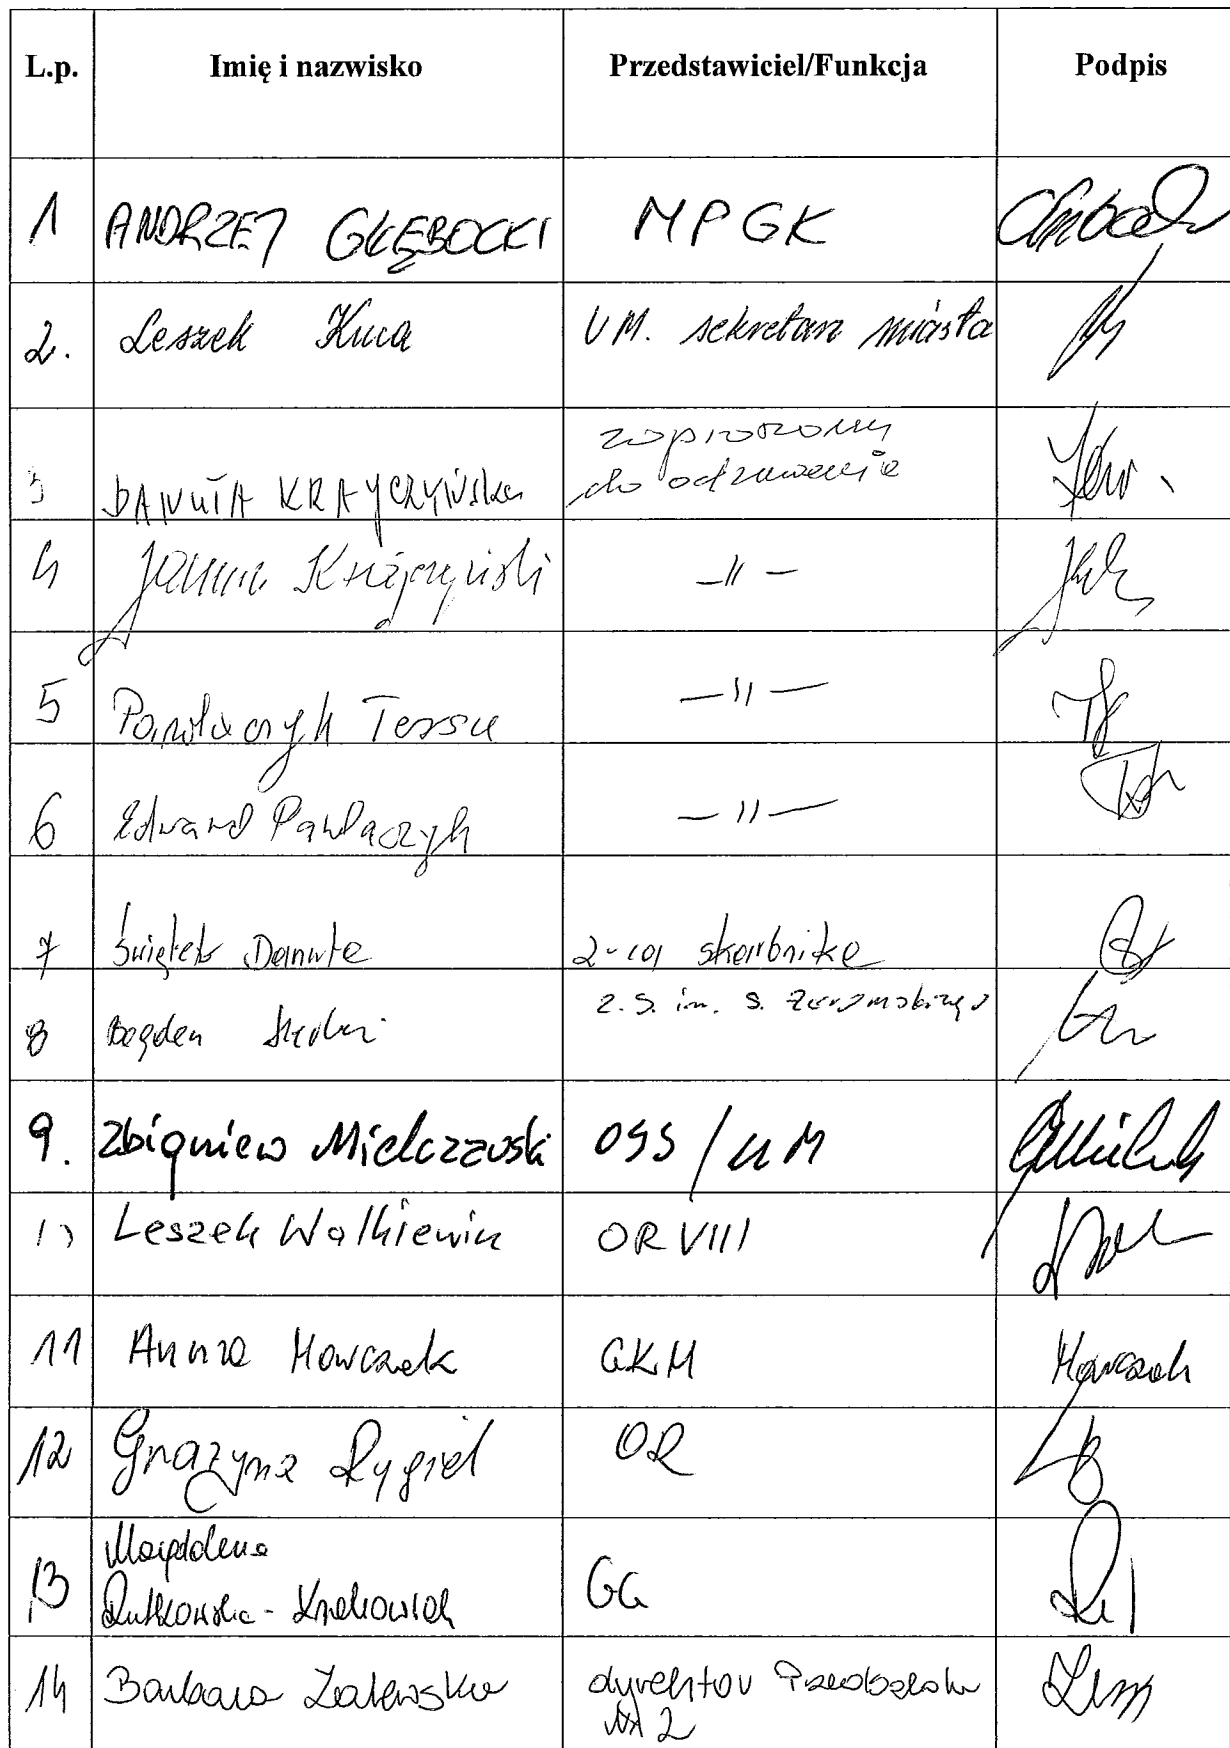 L.p. Imię i nazwisko Przedstawiciel/Funkcja Podpis
1 ANDRZEJ GŁĘBOCKI MPGK
2. Leszek Kuca UM. sekretarz miasta
3 DANUTA KRAJCZYŃSKA zaproszony
do odznaczenia
4 Krajczyński —〃—
5 Pawlaczyk Teresa —〃—
6 Edward Pawlaczyk —〃—
7 Świątek Danuta z-ca skarbnika
8 Bogdan Z.S. im. S. Żeromskiego
9. Zbigniew Mielczewski OSS/UM
10 Leszek Walkiewicz OR VIII
11 Anna Hawczak GKM Hawczak
12 Grażyna Rygiel OR
13 Magdalena
Rutkowska - GG
14 Barbara Zalewska dyrektor Przedszkola
Nr 2